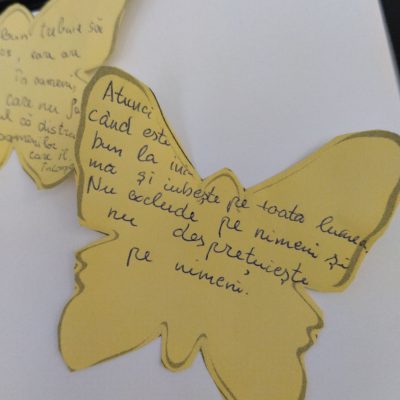 bun trebuie să
care nu fa
că distru
oamenilor
care îl
Atunci
când este
bun la ini-
ma și iubește pe toata lumea.
Nu exclude pe nimeni și
nu desprețuiește
pe nimeni.